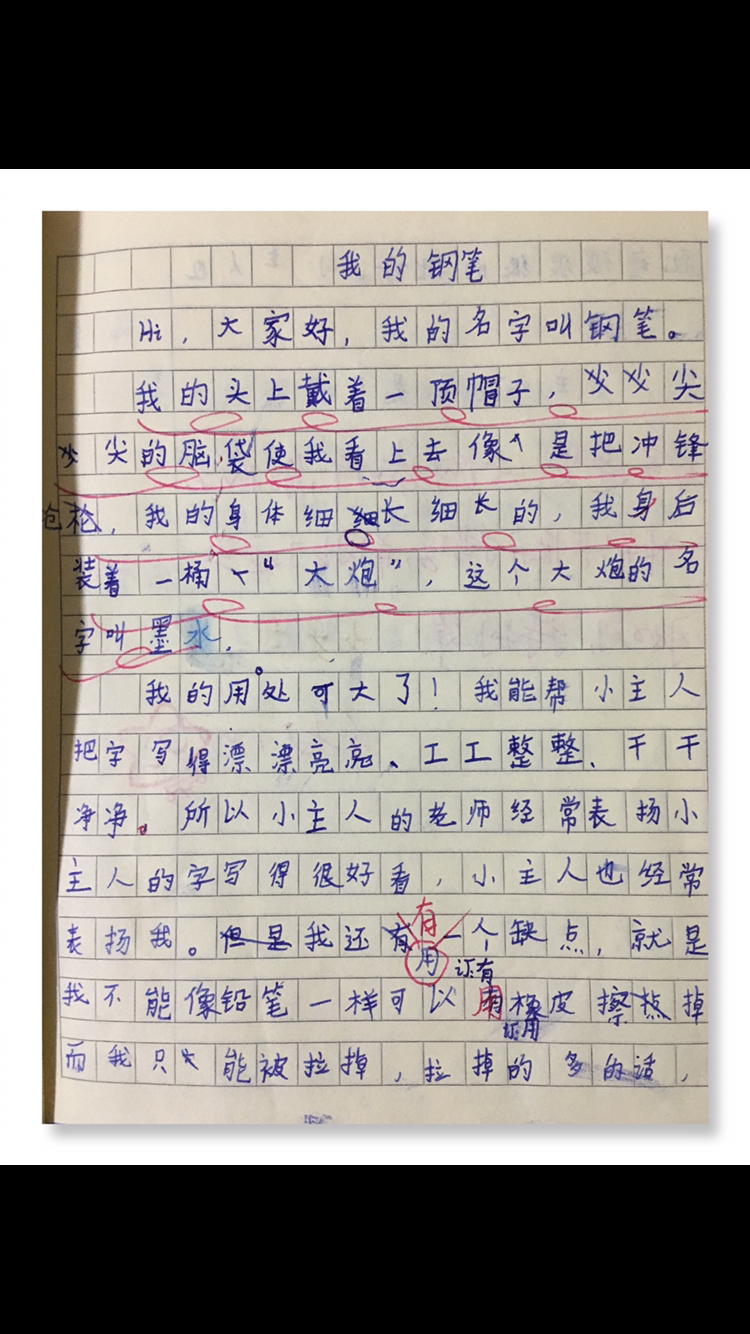 我的钢笔
Hi，大家好，我的名字叫钢笔。
我的头上戴着一顶帽子，尖
尖的脑袋使我看上去像是把冲锋
枪，我的身体细长细长的，我身后
装着一桶“大炮”，这个大炮的名
字叫墨水，
我的用处可大了！我能帮小主人
把字写得漂漂亮亮、工工整整、干干
净净。所以小主人的老师经常表扬小
主人的字写得很好看，小主人也经常
表扬我。但是我还有一个缺点，就是
有
用
还有
我不能像铅笔一样可以用橡皮擦掉
还用
而我只能被拉掉，拉掉的多的话，